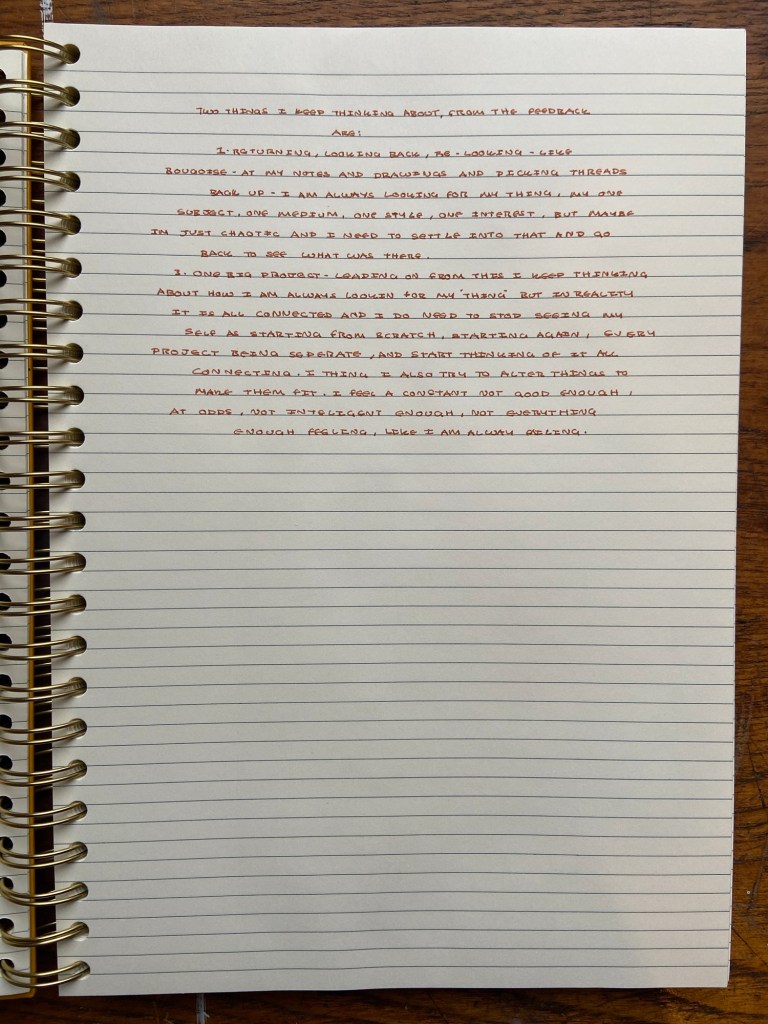 TWO THINGS I KEEP THINKING ABOUT, FROM THE FEEDBACK
ARE:
1. RETURNING, LOOKING BACK, RE-LOOKING - LIKE
BOUGOISE - AT MY NOTES AND DRAWINGS AND PICKING THREADS
BACK UP - I AM ALWAYS LOOKING FOR MY THING, MY ONE
SUBJECT, ONE MEDIUM, ONE STYLE, ONE INTEREST, BUT MAYBE
IM JUST CHAOTIC AND I NEED TO SETTLE INTO THAT AND GO
BACK TO SEE WHAT WAS THERE.
ONE BIG PROJECT - LEADING ON FROM THIS I KEEP THINKING
ABOUT HOW I AM ALWAYS LOOKIN FOR MY "THING" BUT IN REALITY
IT IS ALL CONNECTED AND I DO NEED TO STOP SEEING MY
SELF AS STARTING FROM SCRATCH, STARTING AGAIN, EVERY
PROJECT BEING SEPERATE, AND START THINKING OF IT ALL
CONNECTING. I THING I ALSO TRY TO ALTER THINGS TO
MAKE THEM FIT. I FEEL A CONSTANT NOT GOOD ENOUGH,
AT ODDS, NOT INTELIGENT ENOUGH, NOT EVERYTHING
ENOUGH FEELING, LIKE I AM ALWAY FAILING.